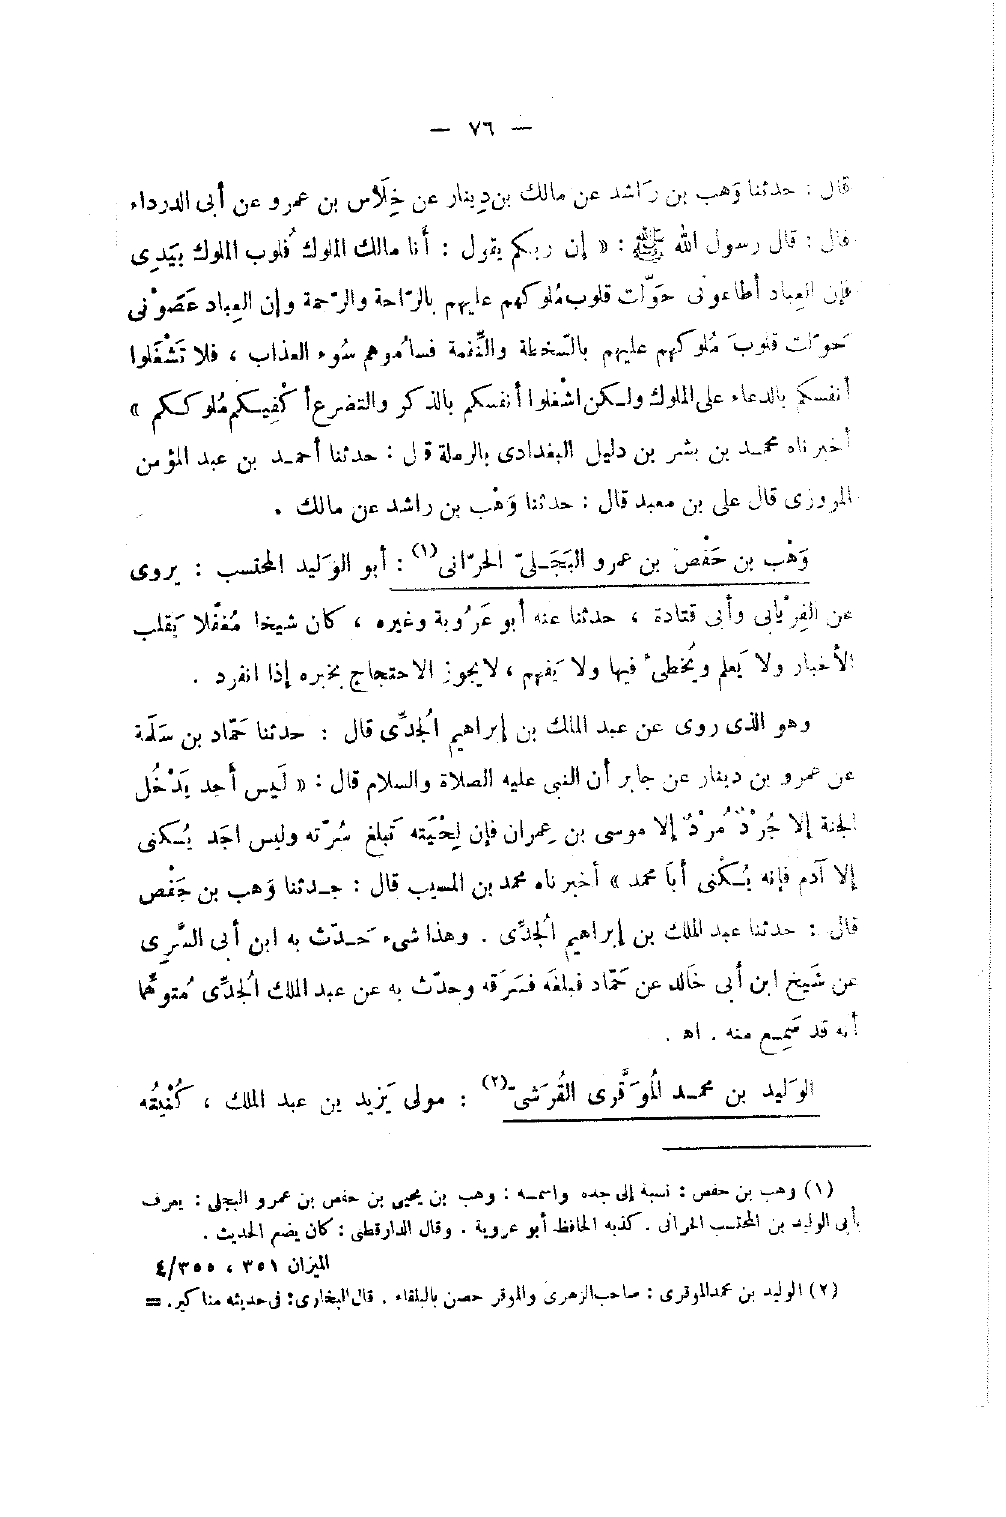 — ٧٦ —
قال : حدثنا وَهب بن رَاشد عن مالك بن دِينار عن خِلَاس بن عمرو عن أبى الدرداء
قال : قال رسول الله ﷺ : « إن ربكم يقول : أنا مالك الملوك قُلوب الملوك بيَدِى
فإن العِباد أطاعونى حَوّلت قلوب مُلوكهم عليهم بالرّاحة والرّحمة وإن العِباد عَصَوْنى
حَوّلت قلوبَ مُلوكهم عليهم بالسّخطة والنِّقمة فسامُوهم سُوء العذاب ، فلا تَشْغَلوا
أنفسكم بالدعاء على الملوك ولـكن اشْغلوا أنفسكم بالذكر والتضرع أكْفِيـكم مُلوكـكم »
أخبرناه محمـد بن بشر بن دليل البغدادى بالرملة قال : حدثنا أحمـد بن عبد المؤمن
المروزى قال على بن معبد قال : حدثنا وَهْب بن راشد عن مالك .
وَهْب بن حَفْص بن عمرو البَجَـلىّ الحرّانى(١) : أبو الوَليد المحتسب : يروى
عن الفِرْيابى وأبى قتادة ، حدثنا عنه أبو عَرُوبة وغيره ، كان شيخا مُغفّلا يَقلب
الأخبار ولا يَعلم ويُخطىُٔ فيها ولا يَفهم ، لايجوز الاحتجاج بخبره إذا انفرد .
وهو الذى روى عن عبد الملك بن إبراهيم الُجدِّى قال : حدثنا حَمّاد بن سَلَمة
عن عمرو بن دينار عن جابر أن النبى عليه الصلاة والسلام قال : « لَيس أحد يَدْخُل
الجنة إلا جُرْدٌ مُرْدٌ إلا موسى بن عِمران فإن لِحْيَته تَبلغ سُرّته وليس احَد يُـكنى
إلا آدم فإنه يُـكْنى أبَا محمد » أخبرناه محمد بن المسيب قال : حـدثنا وَهب بن حَفْص
قال : حدثنا عبد الملك بن إبراهيم الُجدِّى . وهذا شىء حَـدّث به ابن أبى السَّرِى
عن شَيخ ابن أبى خَالد عن حَمّاد فبلغَه فسَرَقه وحدّث به عن عبد الملك الُجدِّى مُتوهّما
أنه قد سَمِـع منه . اه .
الوَليد بن محمـد الُموَقَّرى القُرَشىّ(٢) : مولى يَزيد بن عبد الملك ، كُنْيتُه
(١) وهب بن حفص : نسبة إلى جده واسمـه : وهب بن يحيى بن حفص بن عمرو البجلى : يعرف
بأبى الوليد بن المحتسب الحرانى . كذبه الحافظ أبو عروبة . وقال الدارقطنى : كان يضع الحديث .
الميزان ٣٥١ ، ٤/٣٥٥
(٢) الوليد بن محمد الموقرى : صاحب الزهرى والموقر حصن بالبلقاء . قال البخارى : فى حديثه مناكير . =